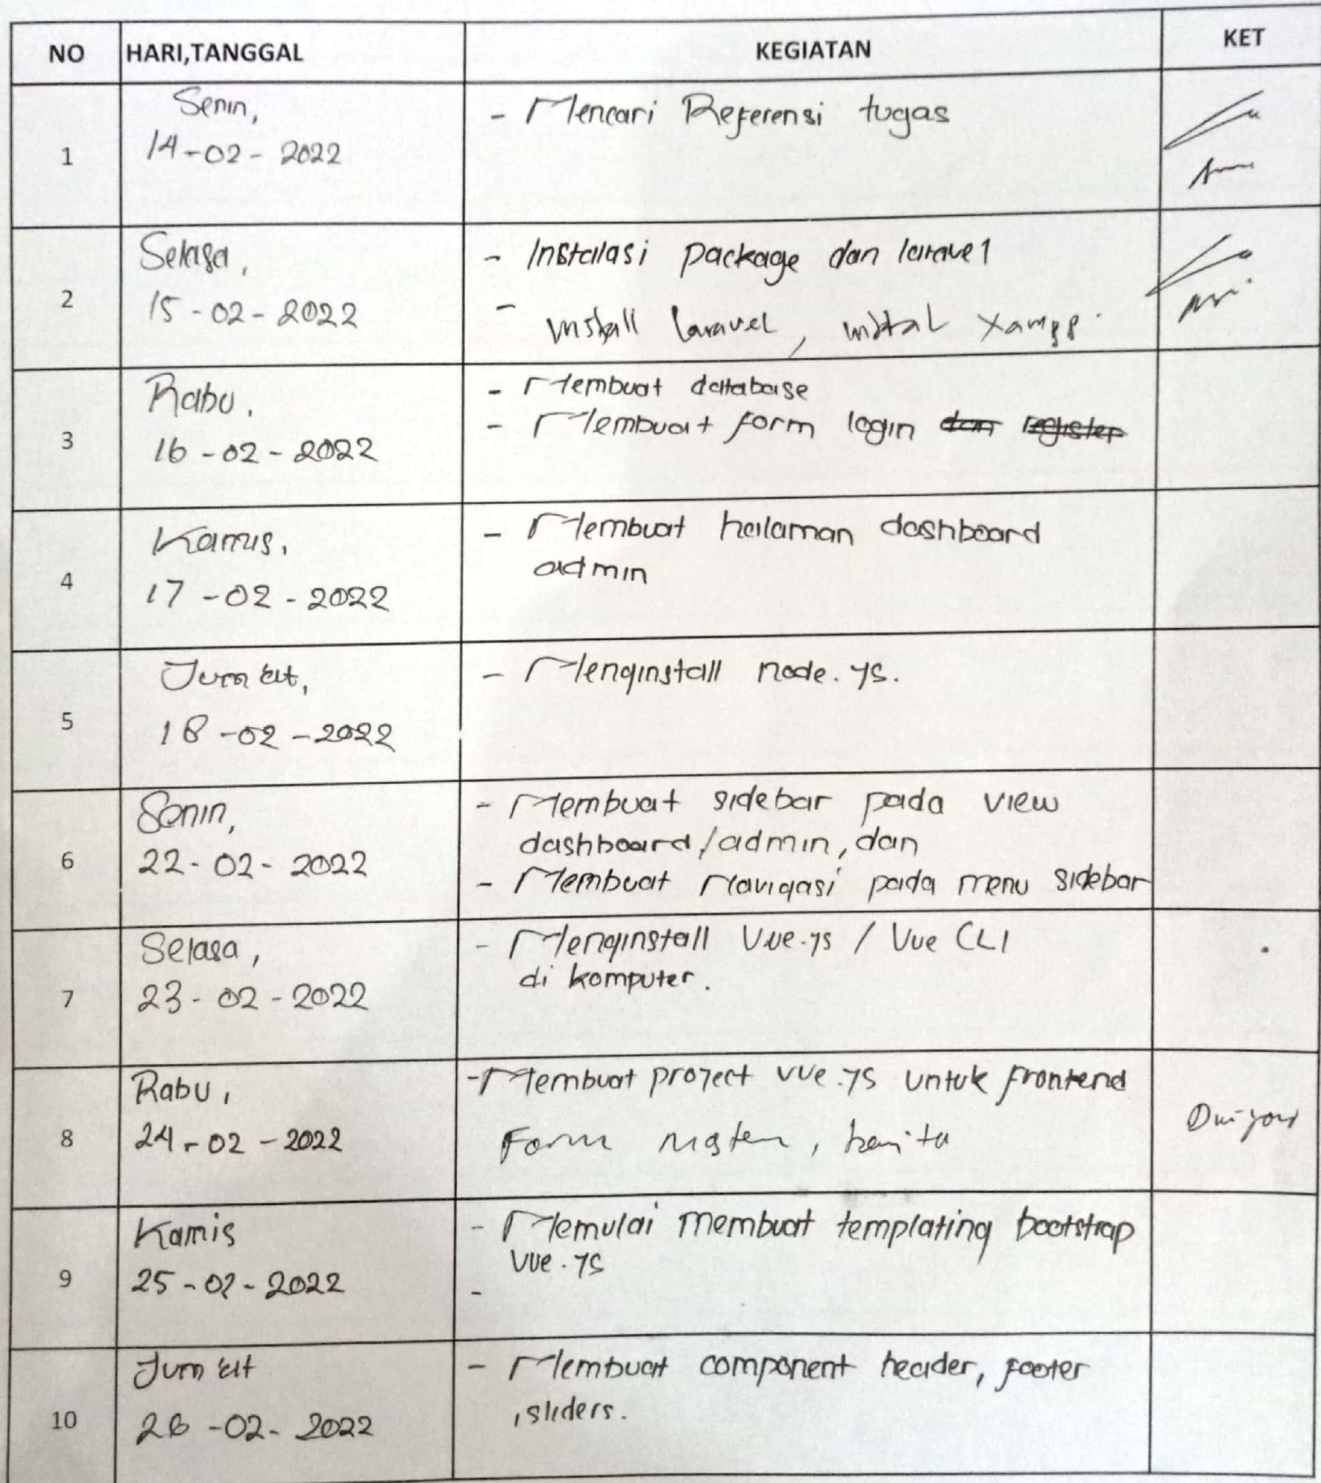 NO HARI,TANGGAL KEGIATAN KET
1
Senin,
14-02-2022
- Mencari Referensi tugas
2
Selasa,
15-02-2022
- Instalasi package dan laravel
- install laravel, instal xampp.
3
Rabu,
16-02-2022
- Membuat database
- Membuat form login dan register
4
Kamis,
17-02-2022
- Membuat halaman dashboard
admin
5
Jum'at,
18-02-2022
- Menginstall node.js.
6
Senin,
22-02-2022
- Membuat sidebar pada view
dashboard/admin, dan
- Membuat Navigasi pada menu sidebar
7
Selasa,
23-02-2022
- Menginstall Vue.js / Vue CLI
di komputer.
8
Rabu,
24-02-2022
- Membuat project vue.js untuk frontend
Form , berita
9
Kamis
25-02-2022
- Memulai membuat templating bootstrap
vue.js
-
10
Jum'at
26-02-2022
- Membuat component header, footer
,sliders.